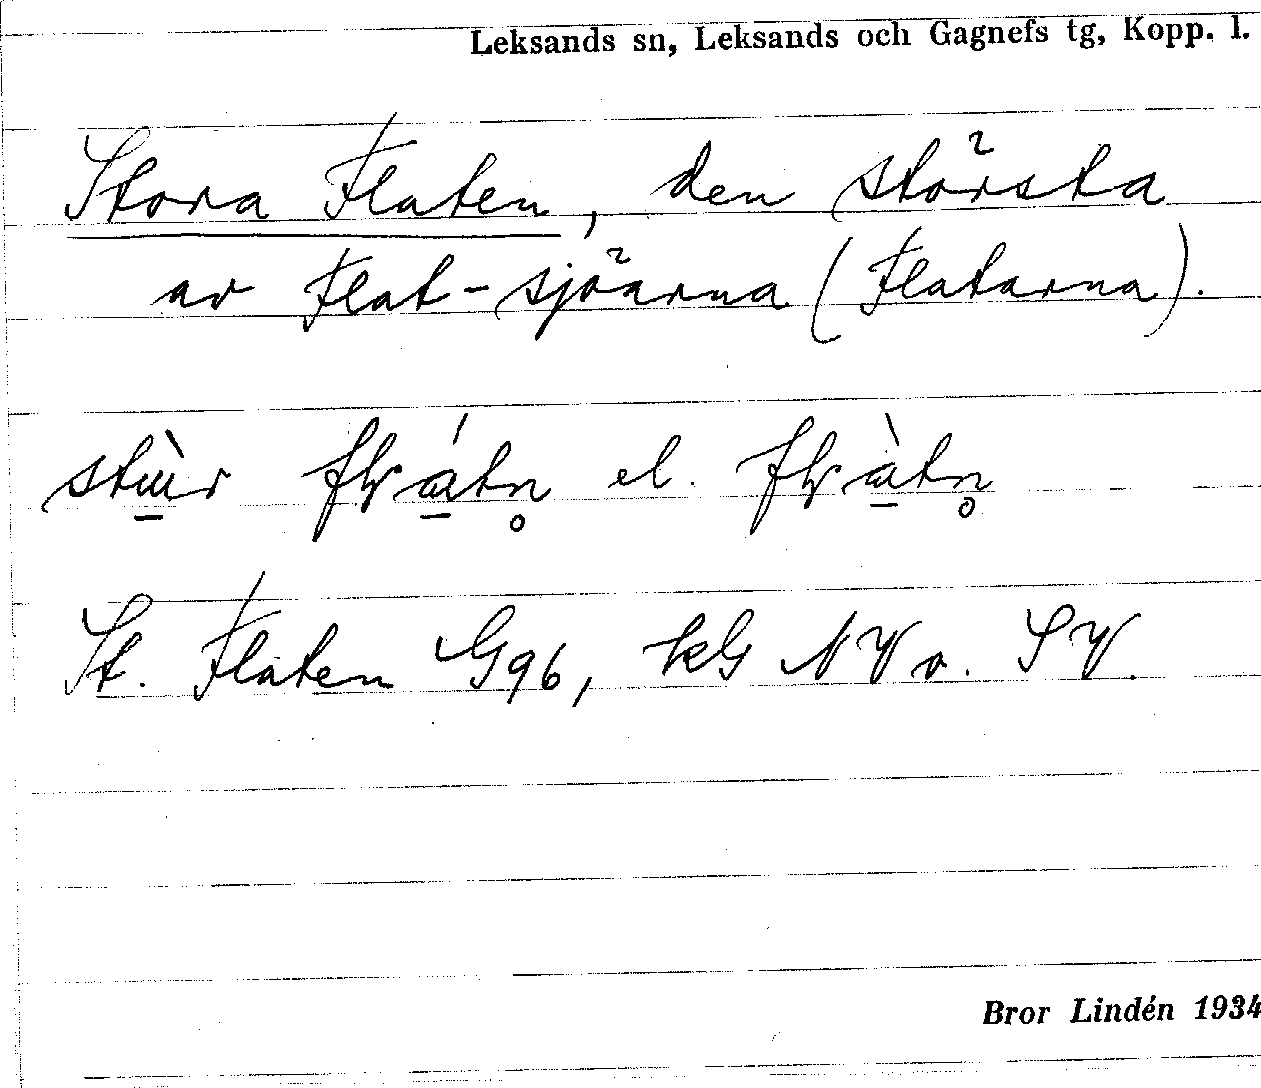 Leksands sn, Leksands och Gagnefs tg, Kopp. l.
Stora Flaten, den största
av Flat-sjöarna (Flatarna).
el.
St. Flaten G96, kG NV o. SV.
Bror Lindén 1934